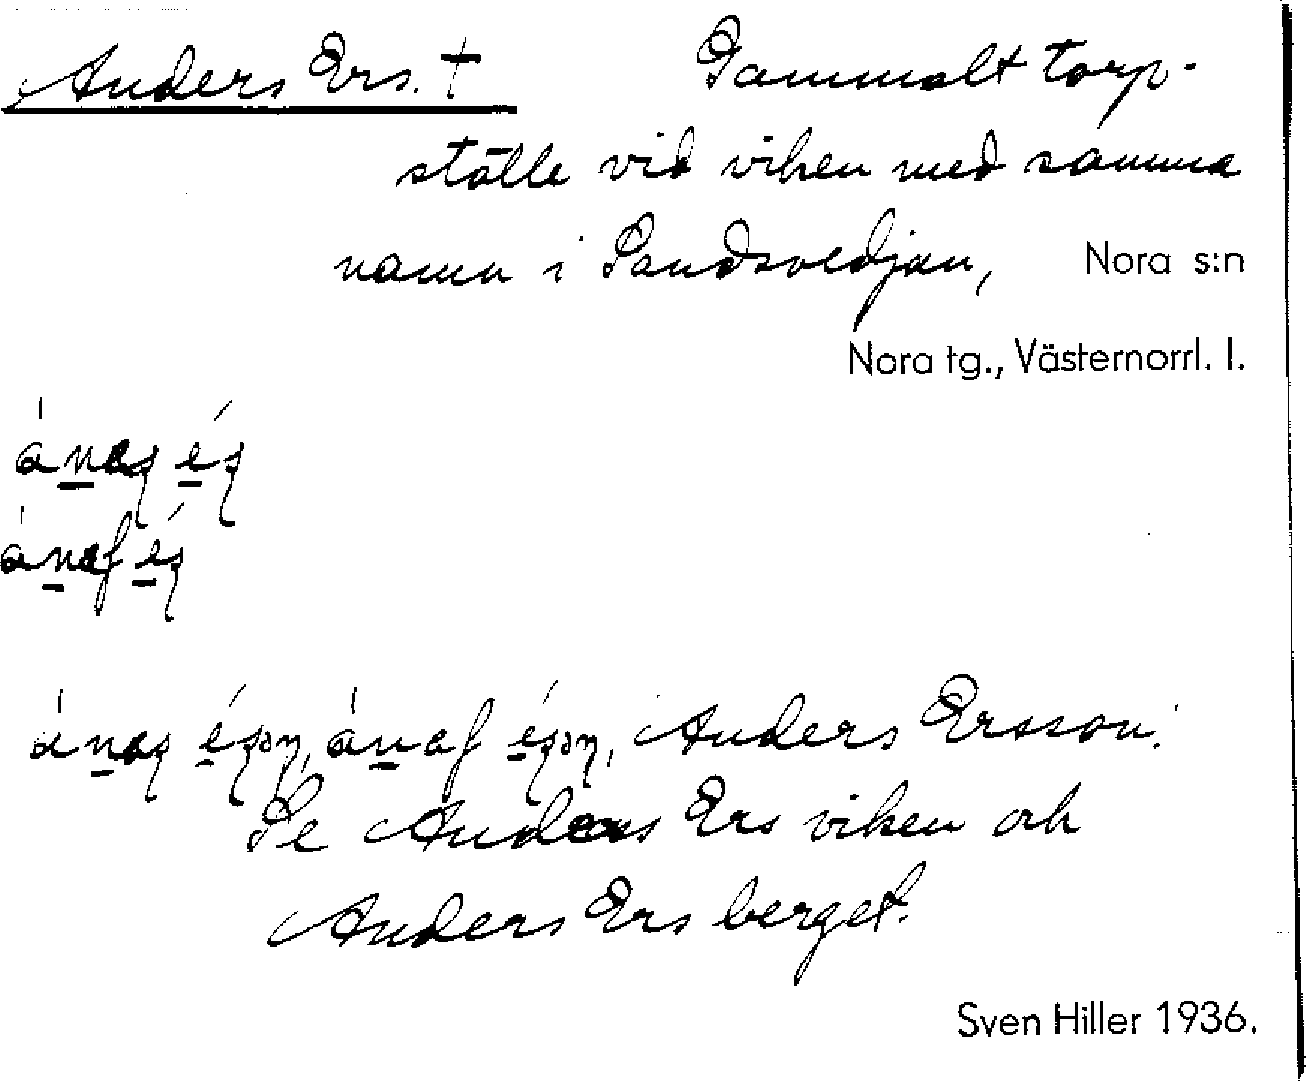 Anders Ers. † Gammalt torp-
ställe vid viken med samma
namn i Sandsvedjan, Nora s:n
Nora tg., Västernorrl. l.
'Anders Ersson.'
Se Anders Ers viken och
Anders Ers berget.
Sven Hiller 1936.